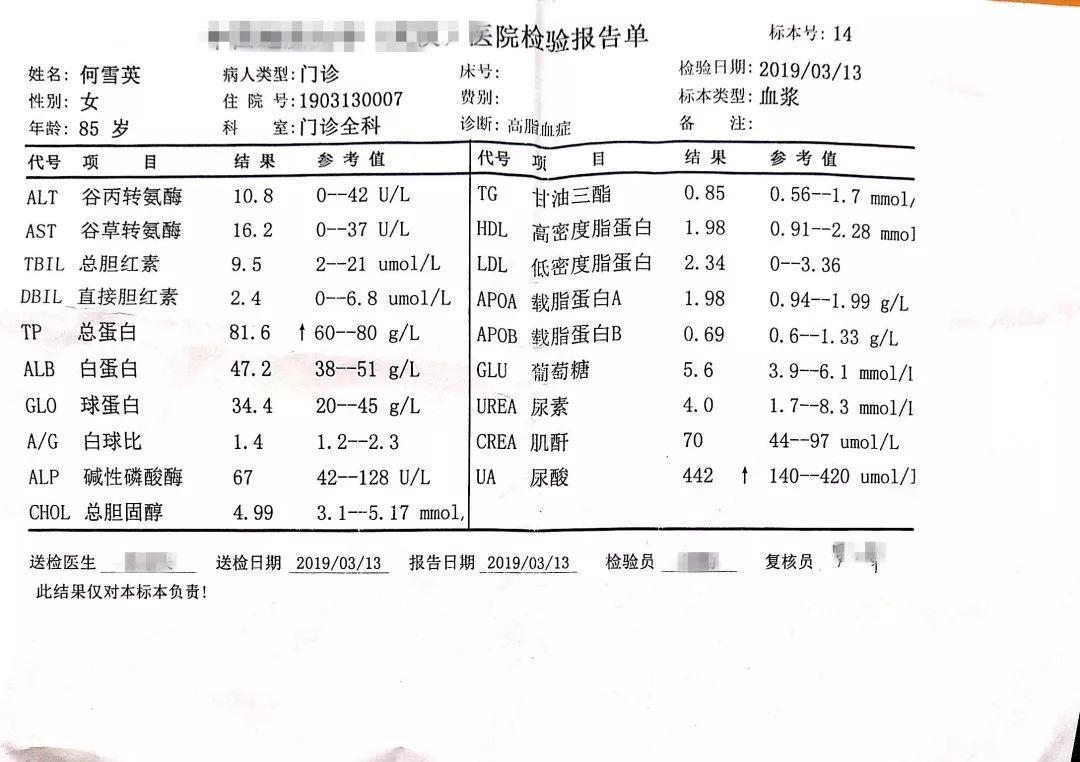 医院检验报告单 标本号: 14
姓名: 何雪英 病人类型: 门诊 床号: 检验日期: 2019/03/13
性别: 女 住院号: 1903130007 费别: 标本类型: 血浆
年龄: 85 岁 科 室: 门诊全科 诊断: 高脂血症 备 注:
代号 项 目 结果 参考值 代号 项 目 结果 参考值
ALT 谷丙转氨酶 10.8 0--42 U/L TG 甘油三酯 0.85 0.56--1.7 mmol/
AST 谷草转氨酶 16.2 0--37 U/L HDL 高密度脂蛋白 1.98 0.91--2.28 mmol
TBIL 总胆红素 9.5 2--21 umol/L LDL 低密度脂蛋白 2.34 0--3.36
DBIL 直接胆红素 2.4 0--6.8 umol/L APOA 载脂蛋白A 1.98 0.94--1.99 g/L
TP 总蛋白 81.6 ↑ 60--80 g/L APOB 载脂蛋白B 0.69 0.6--1.33 g/L
ALB 白蛋白 47.2 38--51 g/L GLU 葡萄糖 5.6 3.9--6.1 mmol/l
GLO 球蛋白 34.4 20--45 g/L UREA 尿素 4.0 1.7--8.3 mmol/l
A/G 白球比 1.4 1.2--2.3 CREA 肌酐 70 44--97 umol/L
ALP 碱性磷酸酶 67 42--128 U/L UA 尿酸 442 ↑ 140--420 umol/l
CHOL 总胆固醇 4.99 3.1--5.17 mmol,
送检医生 送检日期 2019/03/13 报告日期 2019/03/13 检验员 复核员
此结果仅对本标本负责!